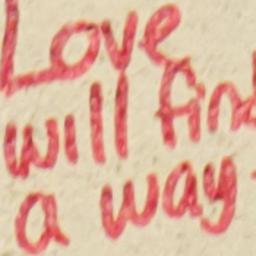 Love
will find
a way.